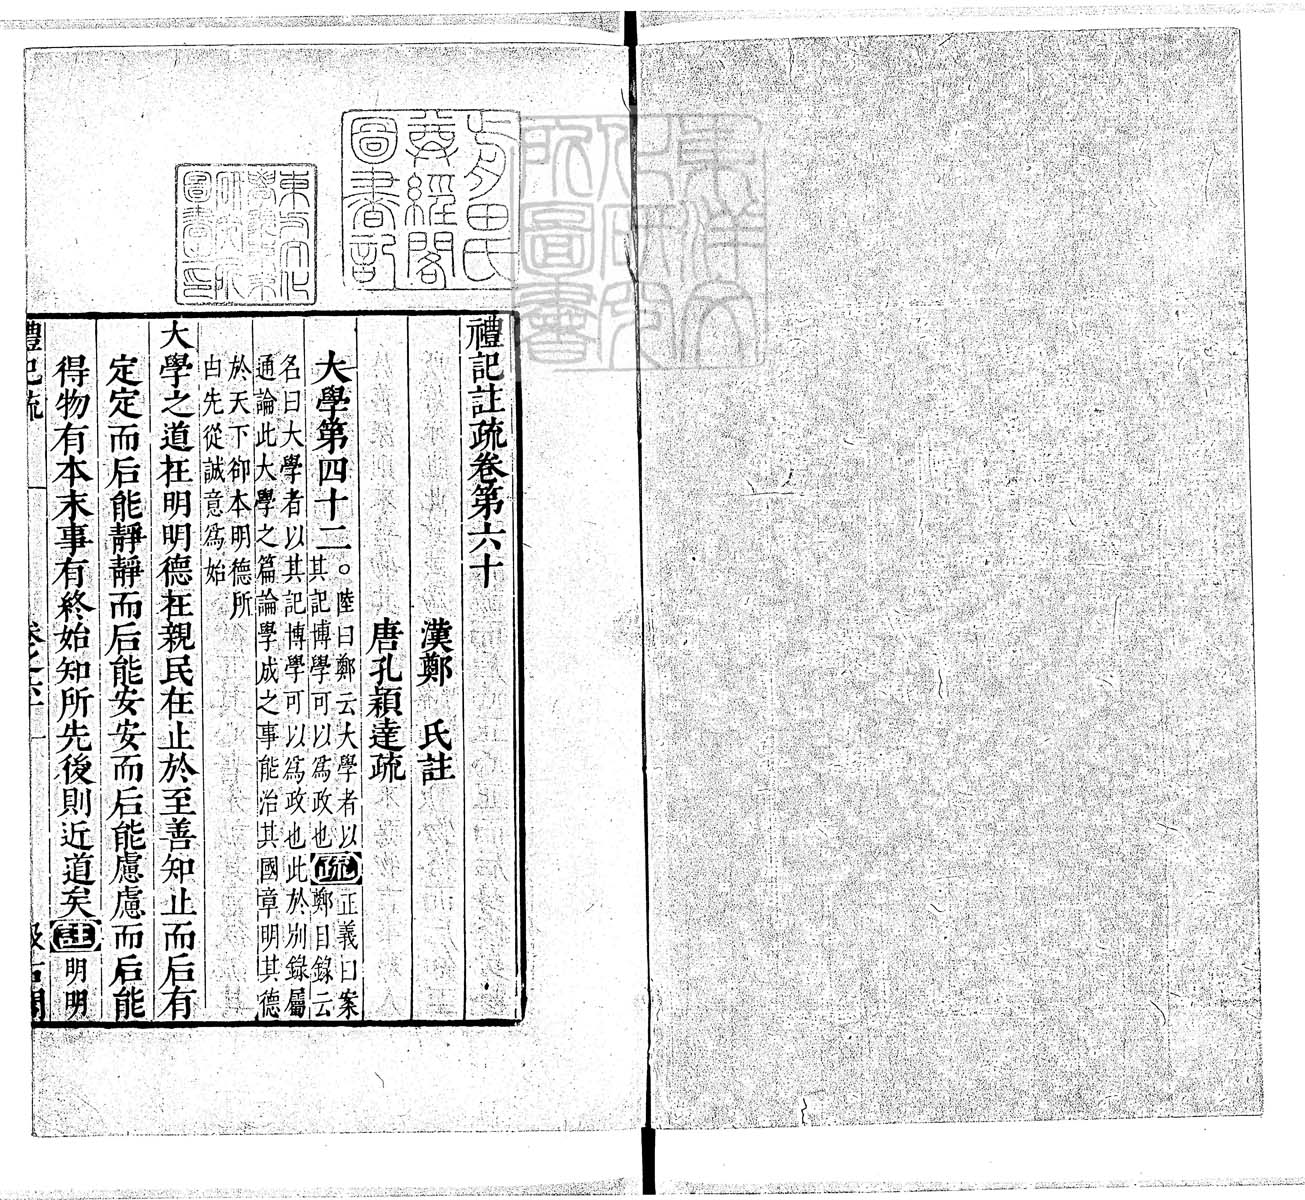 東洋文
化研究
所圖書
前田氏
尊經閣
圖書記
禮記註疏卷第六十
漢鄭　氏註
唐孔穎達疏
大學第四十二。陸曰鄭云大學者以
其記博學可以爲政也疏正義曰案
鄭目錄云
名曰大學者以其記博學可以爲政也此於別錄屬
通論此大學之篇論學成之事能治其國章明其德
於天下卻本明德所
由先從誠意爲始
大學之道在明明德在親民在止於至善知止而后有
定定而后能靜靜而后能安安而后能慮慮而后能
得物有本末事有終始知所先後則近道矣註明明
禮記疏
卷之六十
一
汲古閣